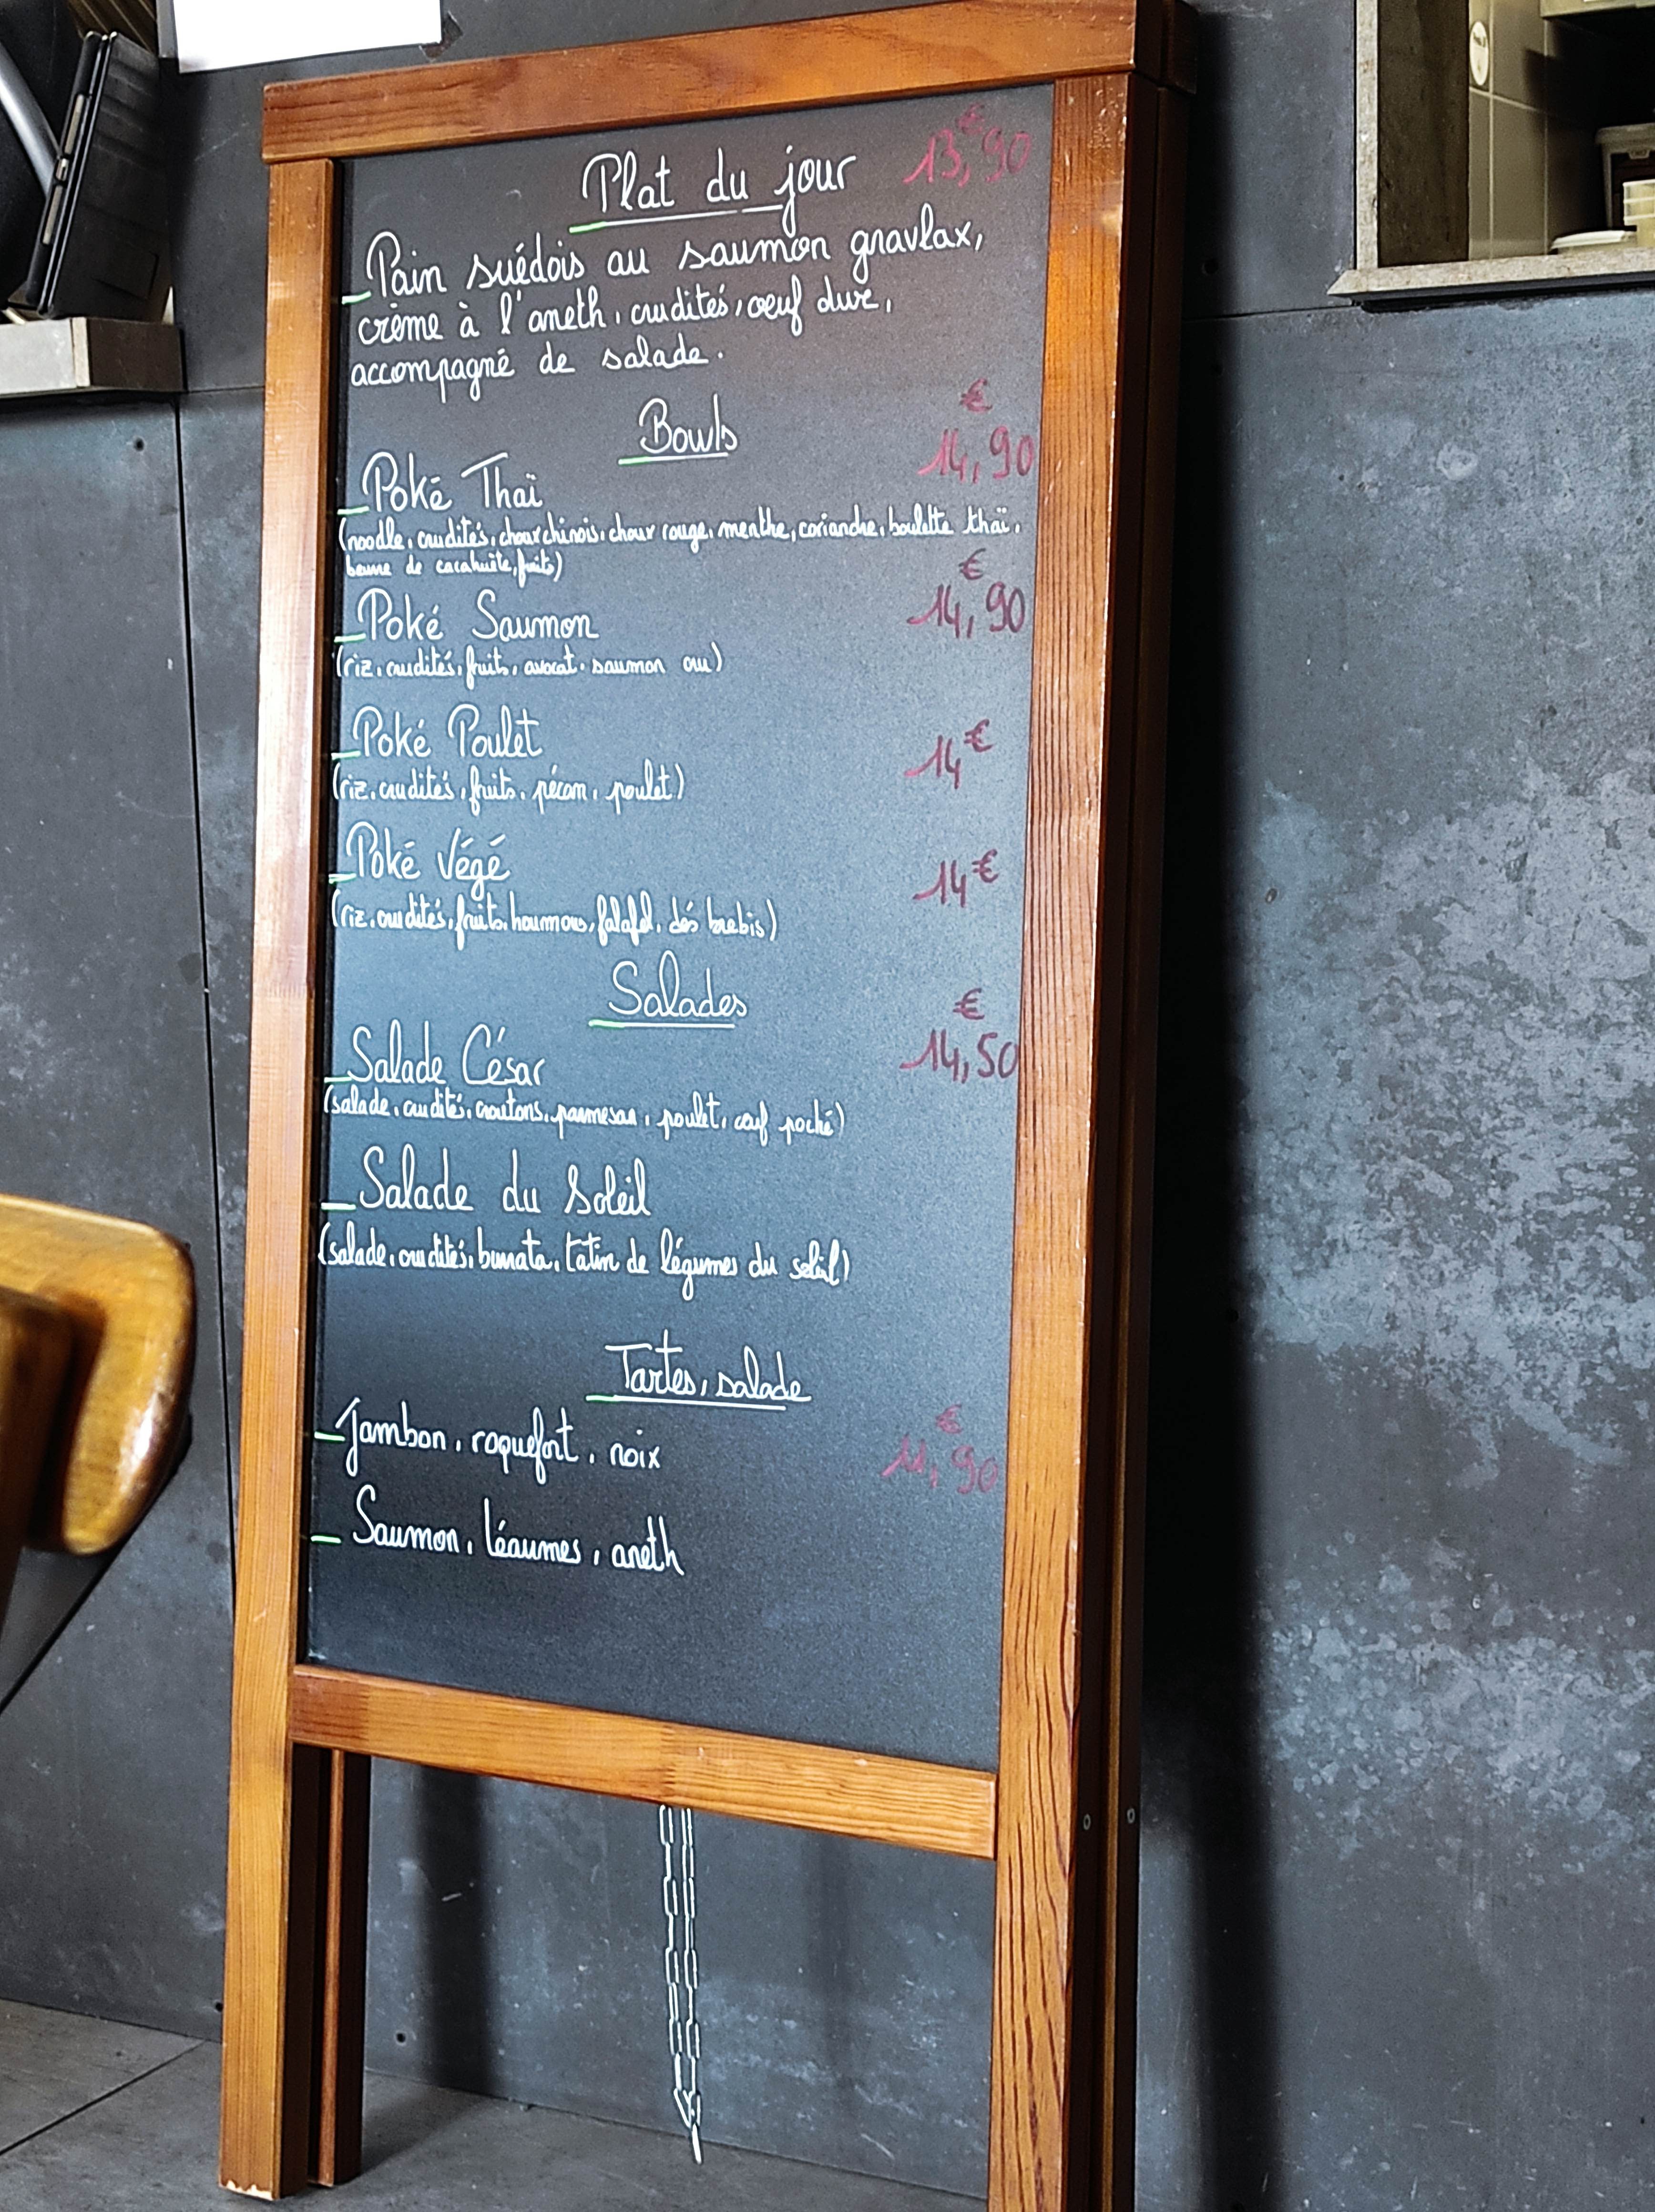 Plat du jour 13,90 €
_Pain suédois au saumon gravlax,
crème à l'aneth, crudités, oeuf dure,
accompagné de salade.
Bowls
_Poké Thaï 14,90 €
(noodle, crudités, choux chinois, choux rouge, menthe, coriandre, boulette thaï,
beurre de cacahuète, fruits)
_Poké Saumon 14,90 €
(riz, crudités, fruits, avocat, saumon cru)
_Poké Poulet 14 €
(riz, crudités, fruits, pécan, poulet)
_Poké Végé 14 €
(riz, crudités, fruits, houmous, falafel, dés brebis)
Salades
_Salade César 14,50 €
(salade, crudités, croutons, parmesan, poulet, oeuf poché)
_Salade du Soleil
(salade, crudités, burrata, tatin de légumes du soleil)
Tartes, salade
_Jambon, roquefort, noix 11,90 €
_Saumon, légumes, aneth